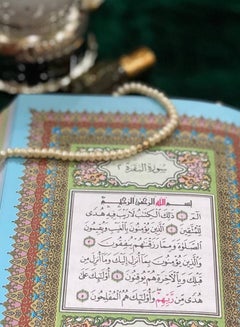 سورة البقرة ٢
بسم الله الرحمن الرحيم
الٓمٓ ۝١ ذَٰلِكَ ٱلْكِتَٰبُ لَا رَيْبَ فِيهِ هُدًى
لِّلْمُتَّقِينَ ۝٢ ٱلَّذِينَ يُؤْمِنُونَ بِٱلْغَيْبِ وَيُقِيمُونَ
ٱلصَّلَوٰةَ وَمِمَّا رَزَقْنَٰهُمْ يُنفِقُونَ ۝٣
وَٱلَّذِينَ يُؤْمِنُونَ بِمَآ أُنزِلَ إِلَيْكَ وَمَآ أُنزِلَ مِن
قَبْلِكَ وَبِٱلْءَاخِرَةِ هُمْ يُوقِنُونَ ۝٤ أُو۟لَٰٓئِكَ عَلَىٰ
هُدًى مِّن رَّبِّهِمْ وَأُو۟لَٰٓئِكَ هُمُ ٱلْمُفْلِحُونَ ۝٥